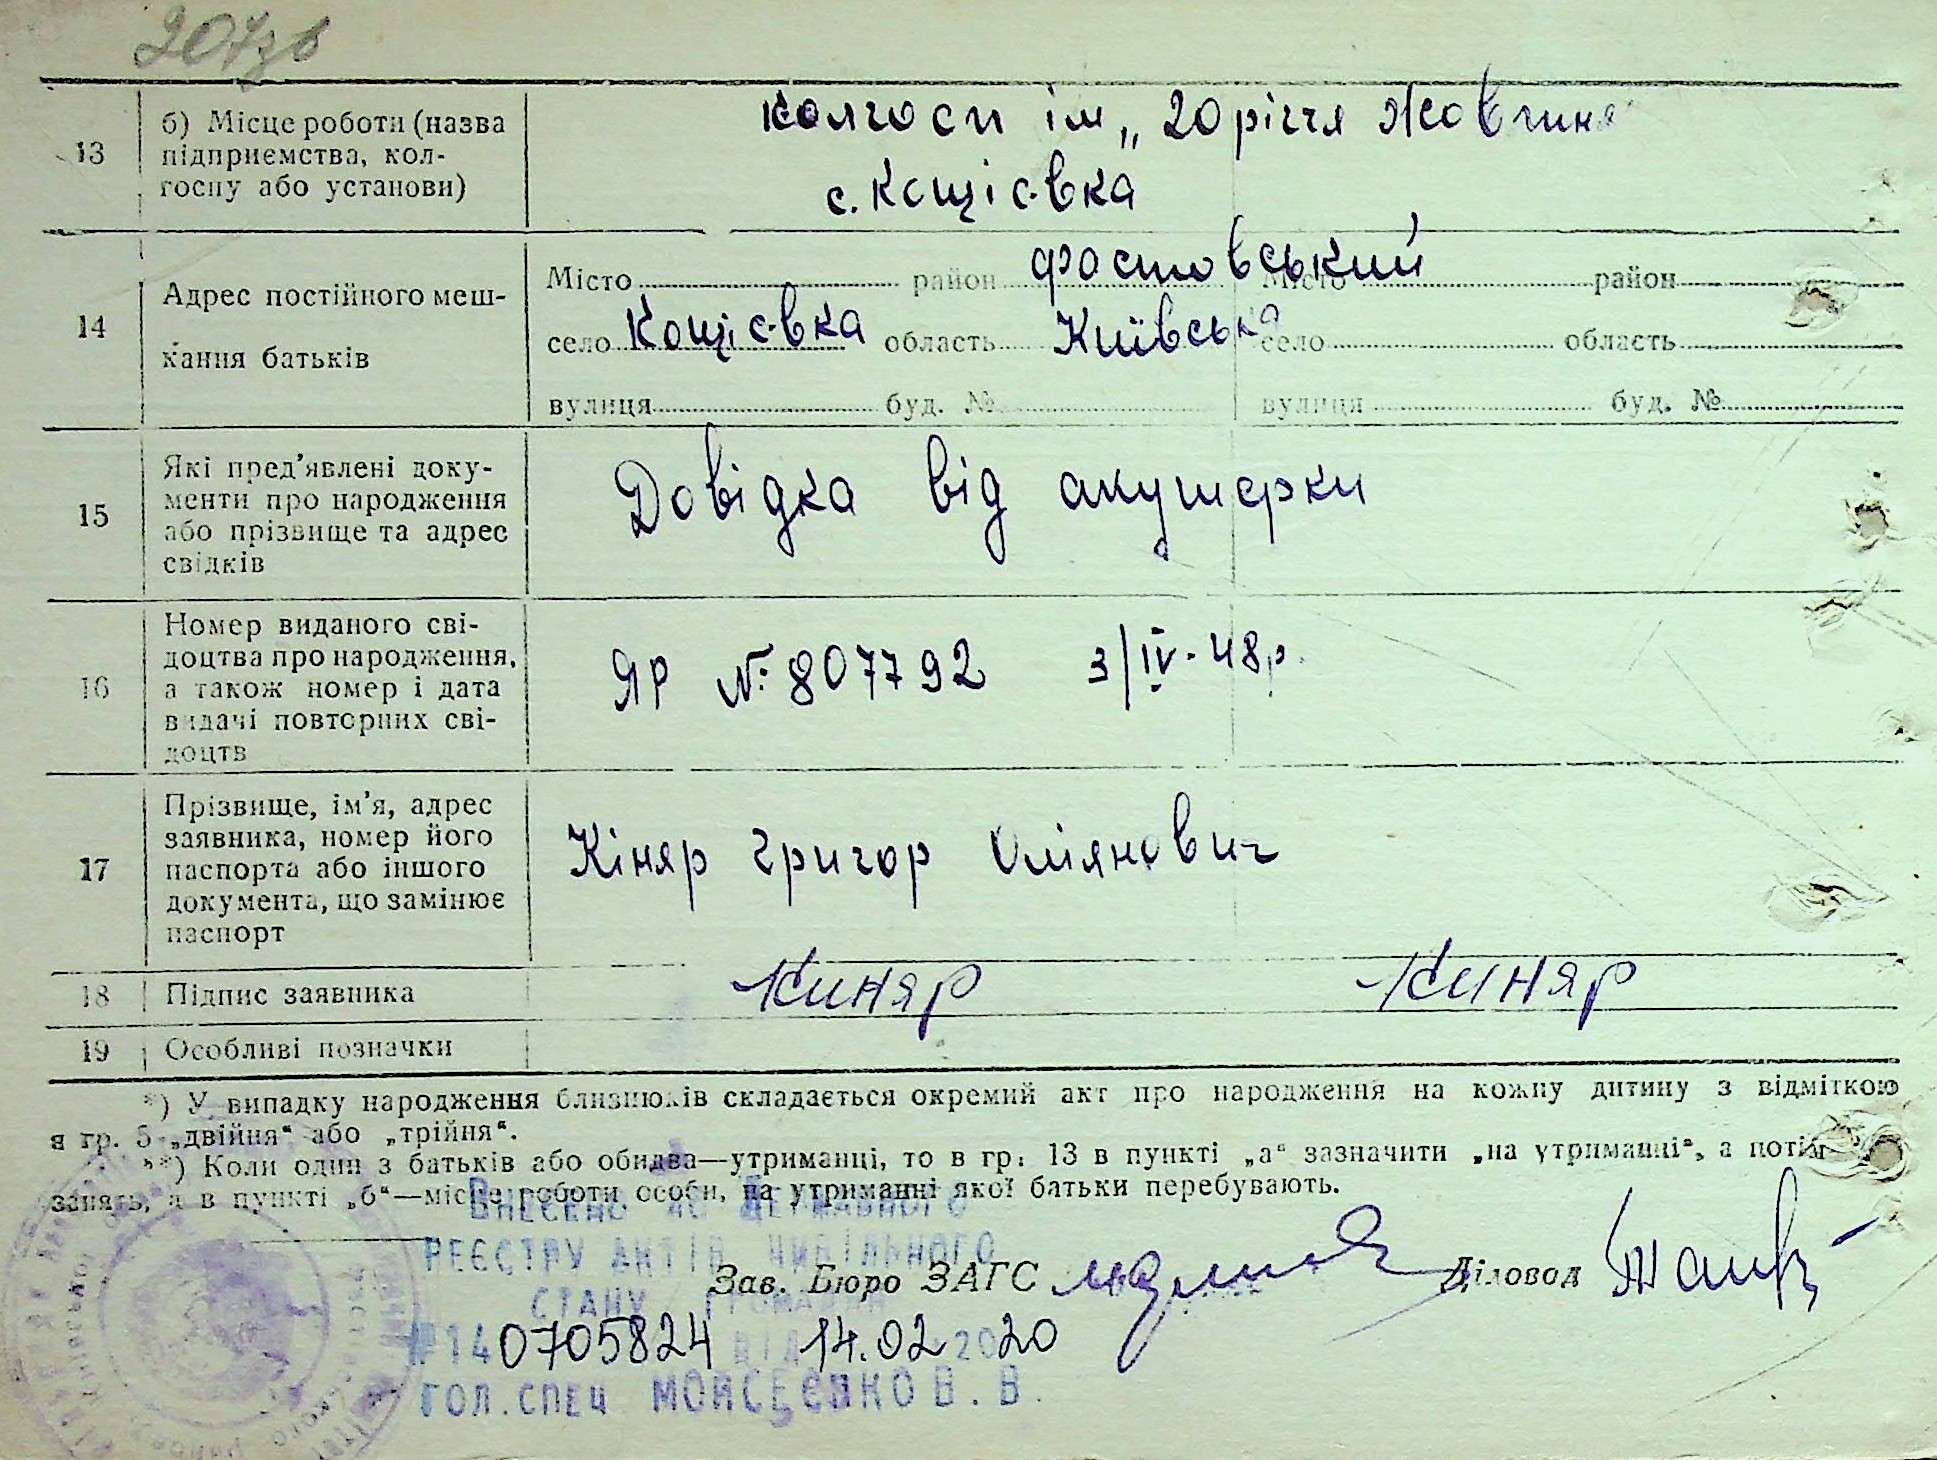 207зв
13
б) Місце роботи (назва
підприємства, кол-
госпу або установи)
колгосп ім „20 річчя Жовтня
с. Кощіївка
14
Адрес постійного меш-
кання батьків
Місто район Фастовський Місто район
село Кощіївка область Київська село область
вулиця буд. № вулиця буд. №
15
Які пред'явлені доку-
менти про народження
або прізвище та адрес
свідків
Довідка від акушерки
16
Номер виданого сві-
доцтва про народження,
а також номер і дата
видачі повторних сві-
доцтв
ЯР №: 807792 3/IV-48р.
17
Прізвище, ім'я, адрес
заявника, номер його
паспорта або іншого
документа, що замінює
паспорт
Кіняр Григор Оліянович
18 Підпис заявника Киняр Киняр
19 Особливі позначки
*) У випадку народження близнюків складається окремий акт про народження на кожну дитину з відміткою
в гр. 5 „двійня“ або „трійня“.
**) Коли один з батьків або обидва—утриманці, то в гр. 13 в пункті „а“ зазначити „на утриманні“, а потім
занять, а в пункті „б“—місце роботи особи, на утриманні якої батьки перебувають.
Внесено до Державного
реєстру актів цивільного
стану громадян
Зав. Бюро ЗАГС Діловод
№ 140705824 від 14.02 2020
гол. спец Моисеєнко В. В.